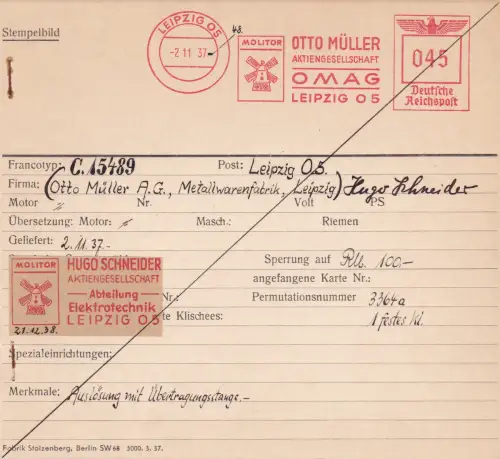 Stempelbild
LEIPZIG O5
-2.11.37-
48.
MOLITOR
OTTO MÜLLER
AKTIENGESELLSCHAFT
OMAG
LEIPZIG O 5
045
Deutsche
Reichspost
Francotyp: C. 15489 Post: Leipzig O5.
Firma: (Otto Müller A.G., Metallwarenfabrik, Leipzig) Hugo Schneider
Motor " Nr. Volt PS
Übersetzung: Motor: " Masch.: Riemen
Geliefert: 2.11.37.-
Sperrung auf RM. 100.-
angefangene Karte Nr.:
MOLITOR
HUGO SCHNEIDER
AKTIENGESELLSCHAFT
— Abteilung —
Elektrotechnik
LEIPZIG O5
21.12.38.
Nr.: Permutationsnummer 3364a
te Klischees: 1 festes Kl.
Spezialeinrichtungen:
Merkmale: Auslösung mit Übertragungsstange.-
Fabrik Stolzenberg, Berlin SW 68 3000. 3. 37.